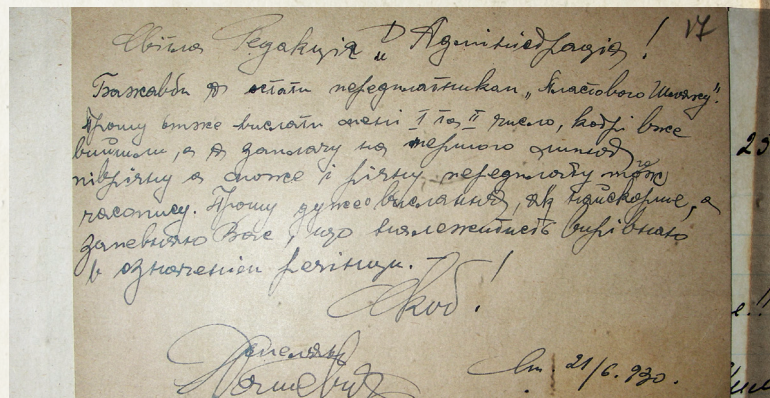 17
Світла Редакція й Адміністрація!
Бажавби я стати передплатником „Пластового Шляху".
Прошу отже вислати мені I та II число, котрі вже
вийшли, а я заплачу на першого липня
піврічну а може і річну передплату
часопису. Прошу дуже вислання, як найскорше, а
запевняю Вас, що належитість вирівнаю
в означенім речинци. –
Скоб!
21/6. 930.